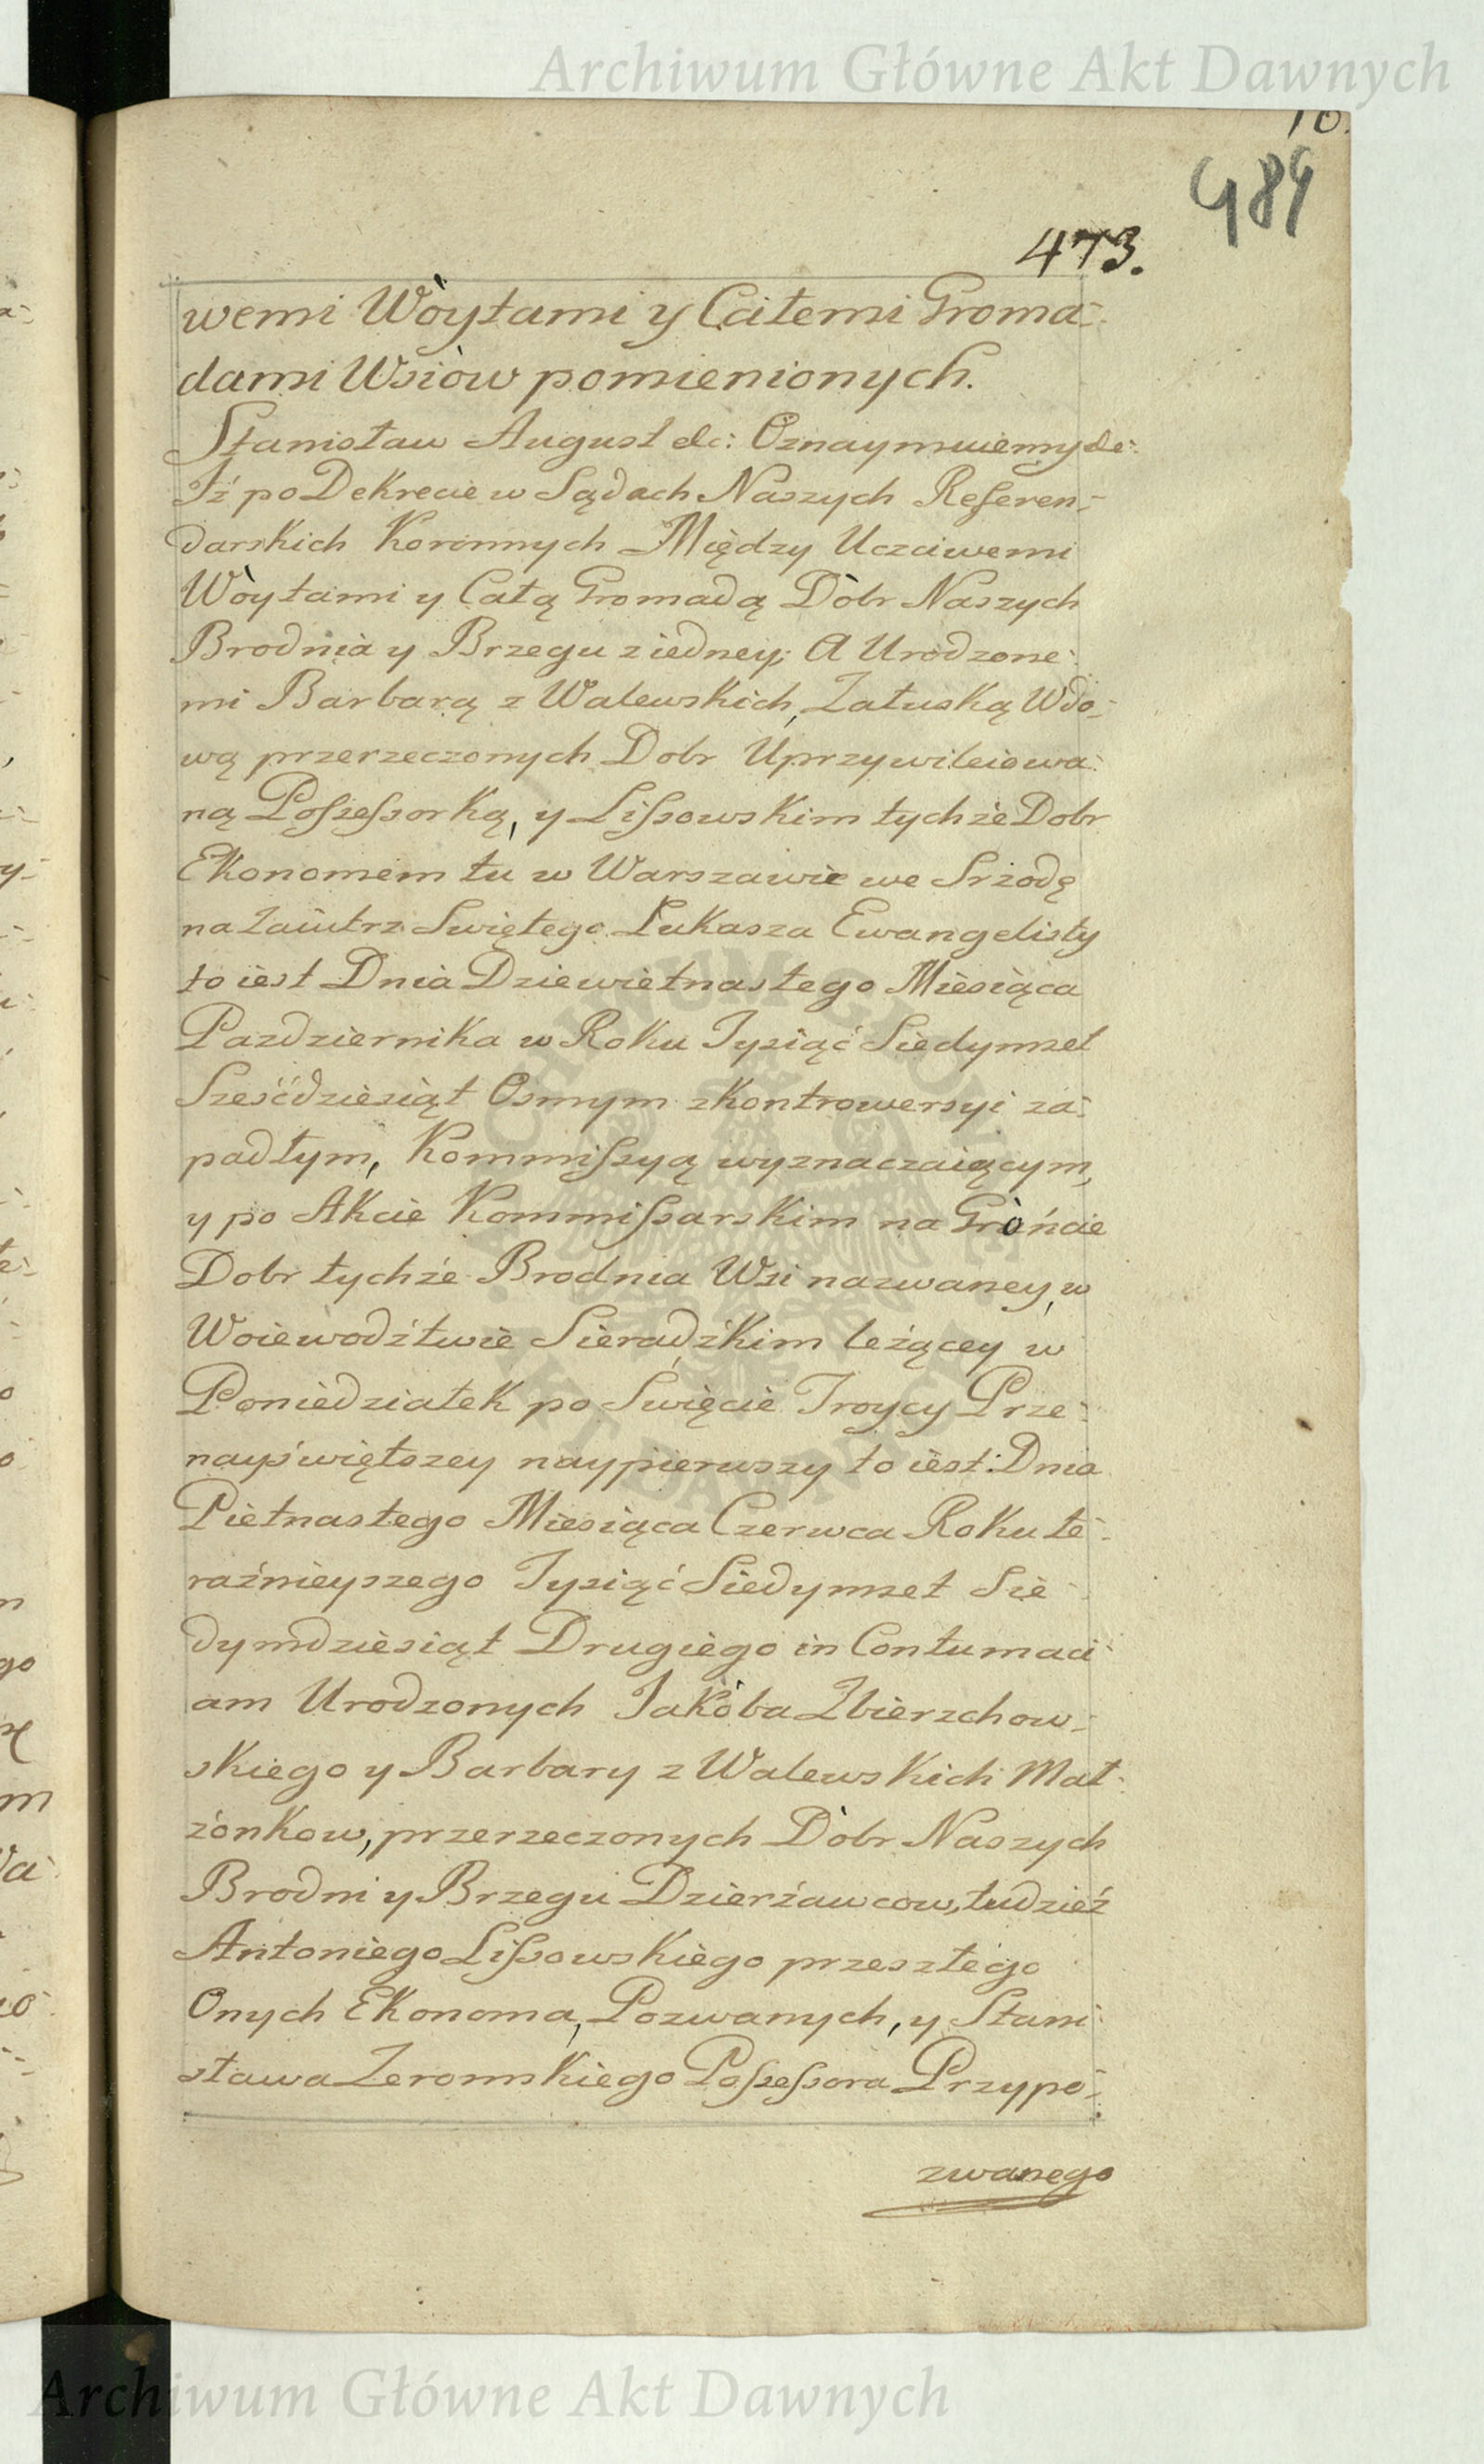 Archiwum Główne Akt Dawnych
489
473.
wemi Wòytami y Całemi Groma-
dami Wsiòw pomienionych.
Stanisław August etc: Oznaymuiemy etc:
Iż po Dekrecie w Sądach Naszych Referen-
darskich Koronnych Między Uczciwemi
Wòytami y Całą Gromadą Dòbr Naszych
Brodnia y Brzegu z iedney; A Urodzone-
mi Barbarą z Walewskich, Załuską Wdo-
wą przerzeczonych Dobr Uprzywileiowa-
ną Possessorką, y Lissowskim tychże Dobr
Ekonomem tu w Warszawie we Srzodę
na Zaiutrz Swiętego Łukasza Ewangelisty
to iest Dnia Dziewietnastego Miesiąca
Pazdziernika w Roku Tysiąć Siedymset
Sześćdziesiąt Osmym z Kontrowersyi za-
padłym, Kommissyą wyznaczaiącym,
y po Akcie Kommissarskim na Gròńcie
Dobr tychże Brodnia Wsi nazwaney, w
Woiewodźtwie Sieradźkim leżącey w
Poniedziałek po Swięcie Troycy Prze-
nayświętszey naypierwszy to iest: Dnia
Piętnastego Miesiąca Czerwca Roku te-
raźnieyszego Tysiąć Siedymset Sie-
dymdziesiąt Drugiego in Contumaci-
am Urodzonych Jakòba Zbierzchow-
skiego y Barbary z Walewskich Mał-
żonkow, przerzeczonych Dòbr Naszych
Brodni y Brzegu Dzierżawcow, tudzież
Antoniego Lissowskiego przeszłego
Onych Ekonoma, Pozwanych, y Stani-
sława Zeromskiego Possessora Przypo-
zwanego
Archiwum Główne Akt Dawnych